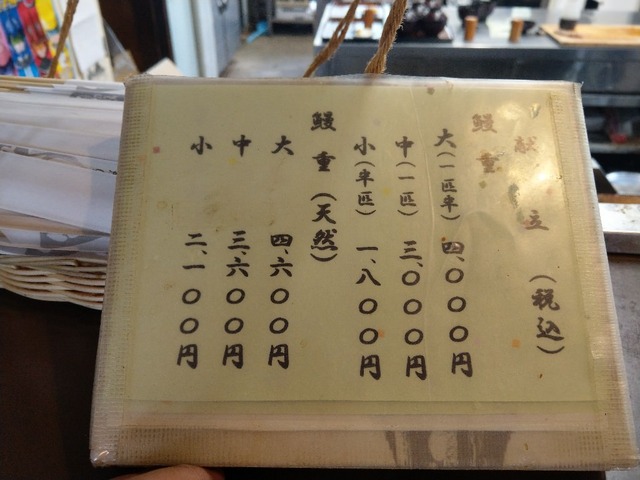 献立 (税込)
鰻重
大(一匹半) 四、〇〇〇円
中(一匹) 三、〇〇〇円
小(半匹) 一、八〇〇円
鰻重(天然)
大 四、六〇〇円
中 三、六〇〇円
小 二、一〇〇円